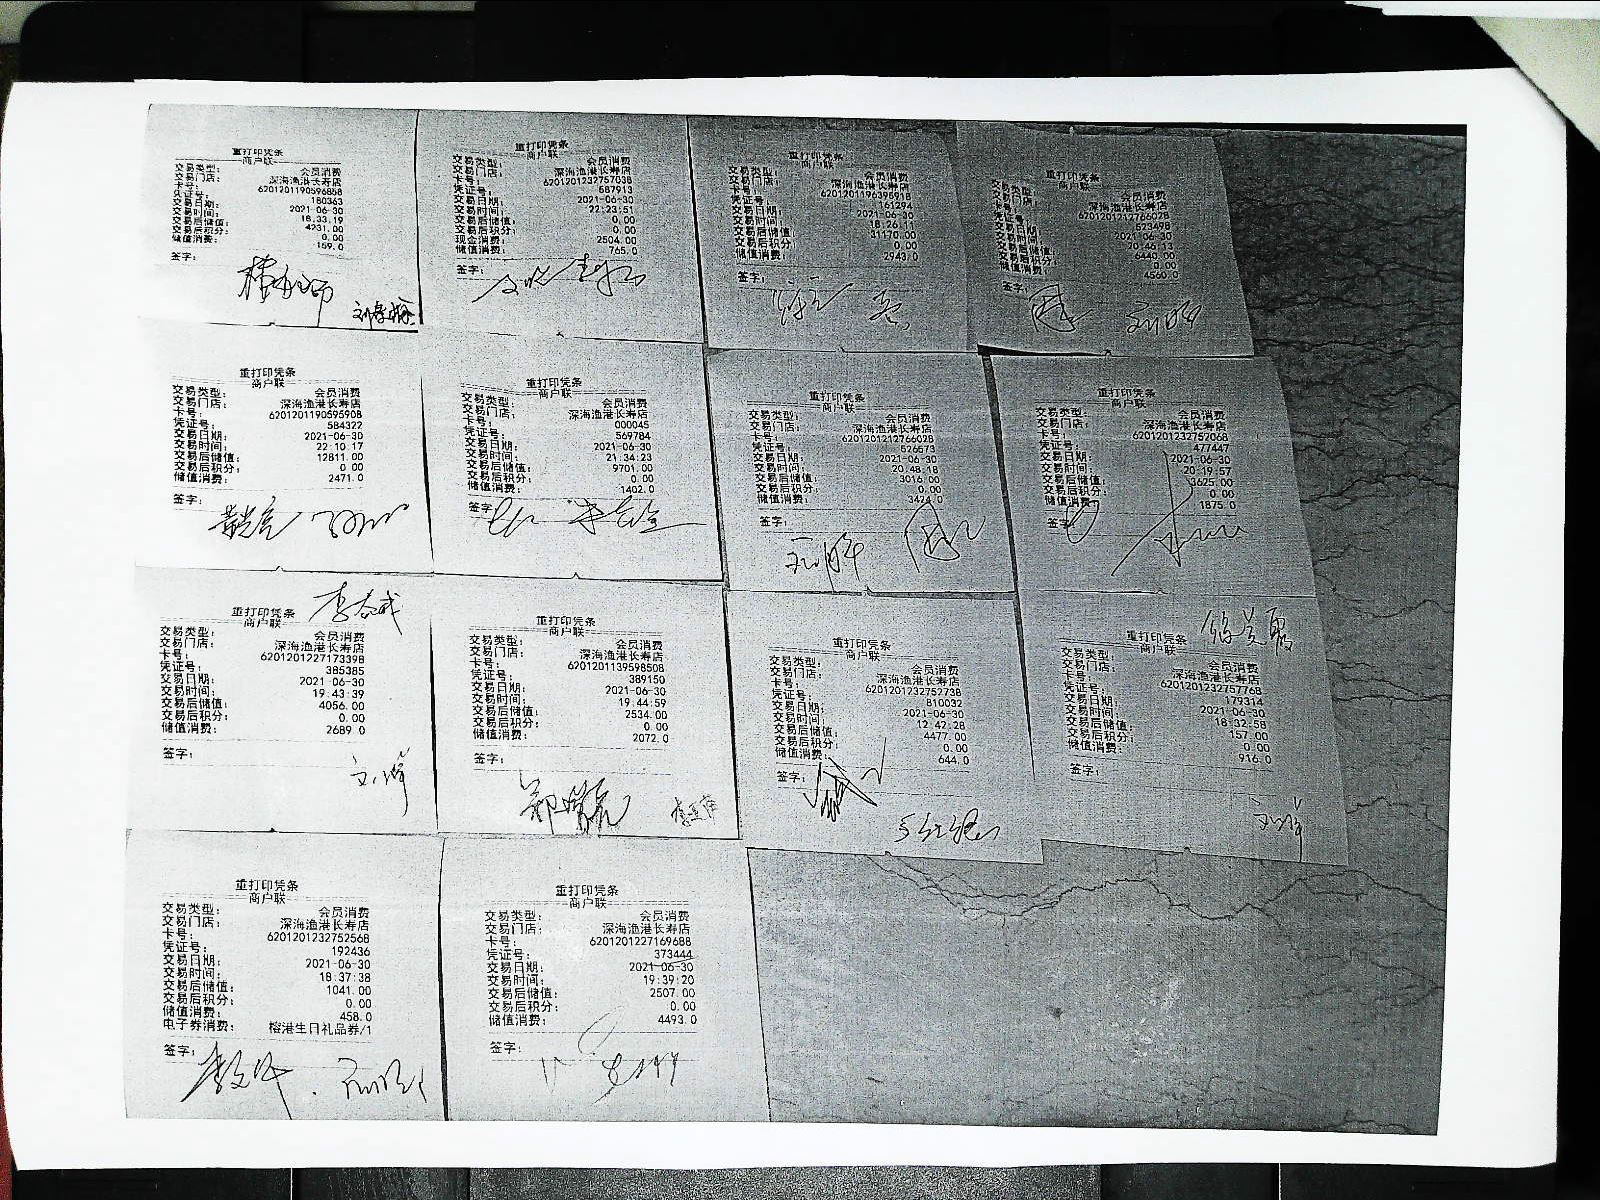 重打印凭条
商户联
交易类型： 会员消费
交易门店： 深海渔港长寿店
卡号： 6201201190596858
凭证号： 180363
交易日期： 2021-06-30
交易时间： 18.33.19
交易后储值： 4231.00
交易后积分： 0.00
储值消费： 159.0
签字：
重打印凭条
商户联
交易类型： 会员消费
交易门店： 深海渔港长寿店
卡号： 6201201232757038
凭证号： 587913
交易日期： 2021-06-30
交易时间： 22:23:51
交易后储值： 0.00
交易后积分： 0.00
现金消费： 2504.00
储值消费： 765.0
签字：
重打印凭条
商户联
交易类型： 会员消费
交易门店： 深海渔港长寿店
卡号：
凭证号： 161294
交易日期： 2021-06-30
交易时间： 18:26:11
交易后储值： 31170.00
交易后积分： 0.00
储值消费： 2943.0
签字：
重打印凭条
商户联
交易类型： 会员消费
交易门店： 深海渔港长寿店
卡号： 6201201212766028
凭证号： 523498
交易日期： 2021-06-30
交易时间： 20:46:13
交易后储值： 6440.00
交易后积分： 0.00
储值消费： 4560.0
签字： 刘晖
重打印凭条
商户联
交易类型： 会员消费
交易门店： 深海渔港长寿店
卡号： 6201201190595908
凭证号： 584322
交易日期： 2021-06-30
交易时间： 22:10:17
交易后储值： 12811.00
交易后积分： 0.00
储值消费： 2471.0
签字：
重打印凭条
商户联
交易类型： 会员消费
交易门店： 深海渔港长寿店
卡号： 000045
凭证号： 569784
交易日期： 2021-06-30
交易时间： 21:34:23
交易后储值： 9701.00
交易后积分： 0.00
储值消费： 1402.0
签字：
重打印凭条
商户联
交易类型： 会员消费
交易门店： 深海渔港长寿店
卡号： 6201201212766028
凭证号： 526573
交易日期： 2021-06-30
交易时间： 20:48:18
交易后储值： 3016.00
交易后积分： 0.00
储值消费： 3424.0
签字：
重打印凭条
商户联
交易类型： 会员消费
交易门店： 深海渔港长寿店
卡号： 6201201232752068
凭证号： 477447
交易日期： 2021-06-30
交易时间： 20:19:57
交易后储值： 3625.00
交易后积分： 0.00
储值消费： 1875.0
签字：
重打印凭条
商户联
交易类型： 会员消费
交易门店： 深海渔港长寿店
卡号： 6201201227173398
凭证号： 385385
交易日期： 2021-06-30
交易时间： 19:43:39
交易后储值： 4056.00
交易后积分： 0.00
储值消费： 2689.0
签字：
重打印凭条
商户联
交易类型： 会员消费
交易门店： 深海渔港长寿店
卡号： 6201201139598508
凭证号： 389150
交易日期： 2021-06-30
交易时间： 19:44:59
交易后储值： 2534.00
交易后积分： 0.00
储值消费： 2072.0
签字：
重打印凭条
商户联
交易类型： 会员消费
交易门店： 深海渔港长寿店
卡号： 6201201232752738
凭证号： 810032
交易日期： 2021-06-30
交易时间： 12:42:28
交易后储值： 4477.00
交易后积分： 0.00
储值消费： 644.0
签字：
重打印凭条
商户联
交易类型： 会员消费
交易门店： 深海渔港长寿店
卡号： 6201201232757768
凭证号： 179314
交易日期： 2021-06-30
交易时间： 18:32:58
交易后储值： 157.00
交易后积分： 0.00
储值消费： 916.0
签字：
重打印凭条
商户联
交易类型： 会员消费
交易门店： 深海渔港长寿店
卡号： 6201201232752568
凭证号： 192436
交易日期： 2021-06-30
交易时间： 18:37:38
交易后储值： 1041.00
交易后积分： 0.00
储值消费： 458.0
电子券消费： 榕港生日礼品券/1
签字：
重打印凭条
商户联
交易类型： 会员消费
交易门店： 深海渔港长寿店
卡号： 6201201227169688
凭证号： 373444
交易日期： 2021-06-30
交易时间： 19:39:20
交易后储值： 2507.00
交易后积分： 0.00
储值消费： 4493.0
签字：